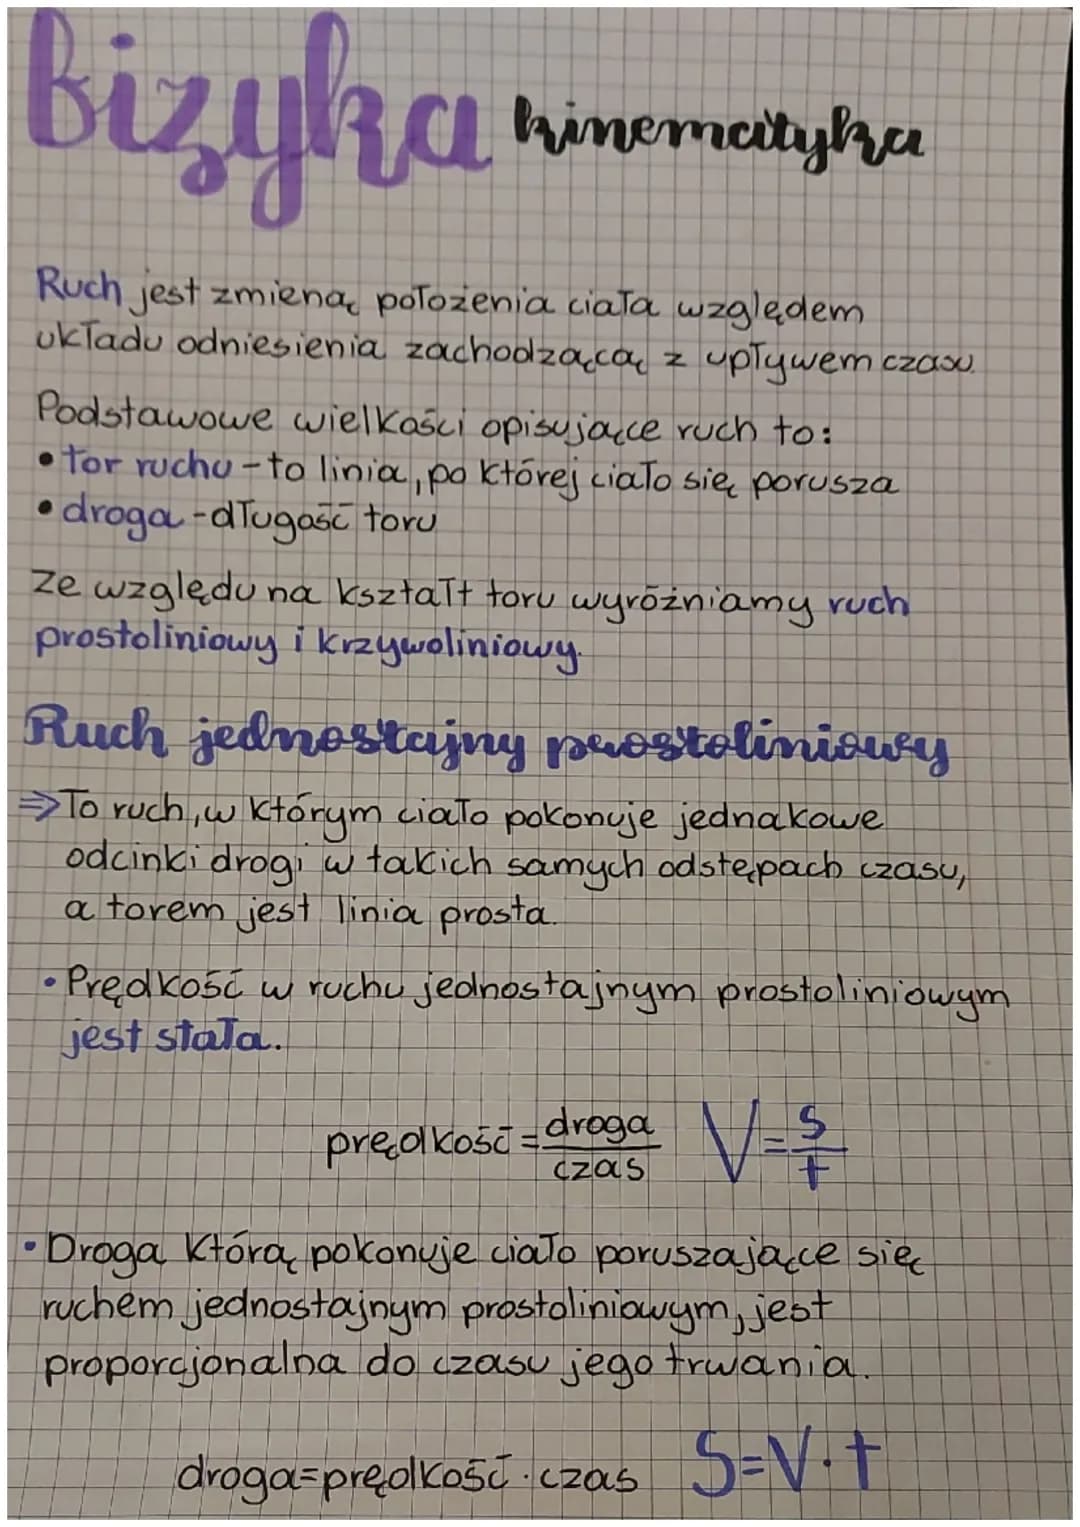 fizyka kinematyka
Ruch jest zmianą położenia ciała względem
układu odniesienia zachodzącą z upływem czasu.
Podstawowe wielkości opisujące ruch to:
• tor ruchu - to linia, po której ciało się porusza
• droga - długość toru
Ze względu na kształt toru wyróżniamy ruch
prostoliniowy i krzywoliniowy.
Ruch jednostajny prostoliniowy
⇒ To ruch, w którym ciało pokonuje jednakowe
odcinki drogi w takich samych odstępach czasu,
a torem jest linia prosta.
• Prędkość w ruchu jednostajnym prostoliniowym
jest stała.
prędkość = droga / czas V = s / t
• Droga którą pokonuje ciało poruszające się
ruchem jednostajnym prostoliniowym, jest
proporcjonalna do czasu jego trwania.
droga = prędkość · czas S = V · t